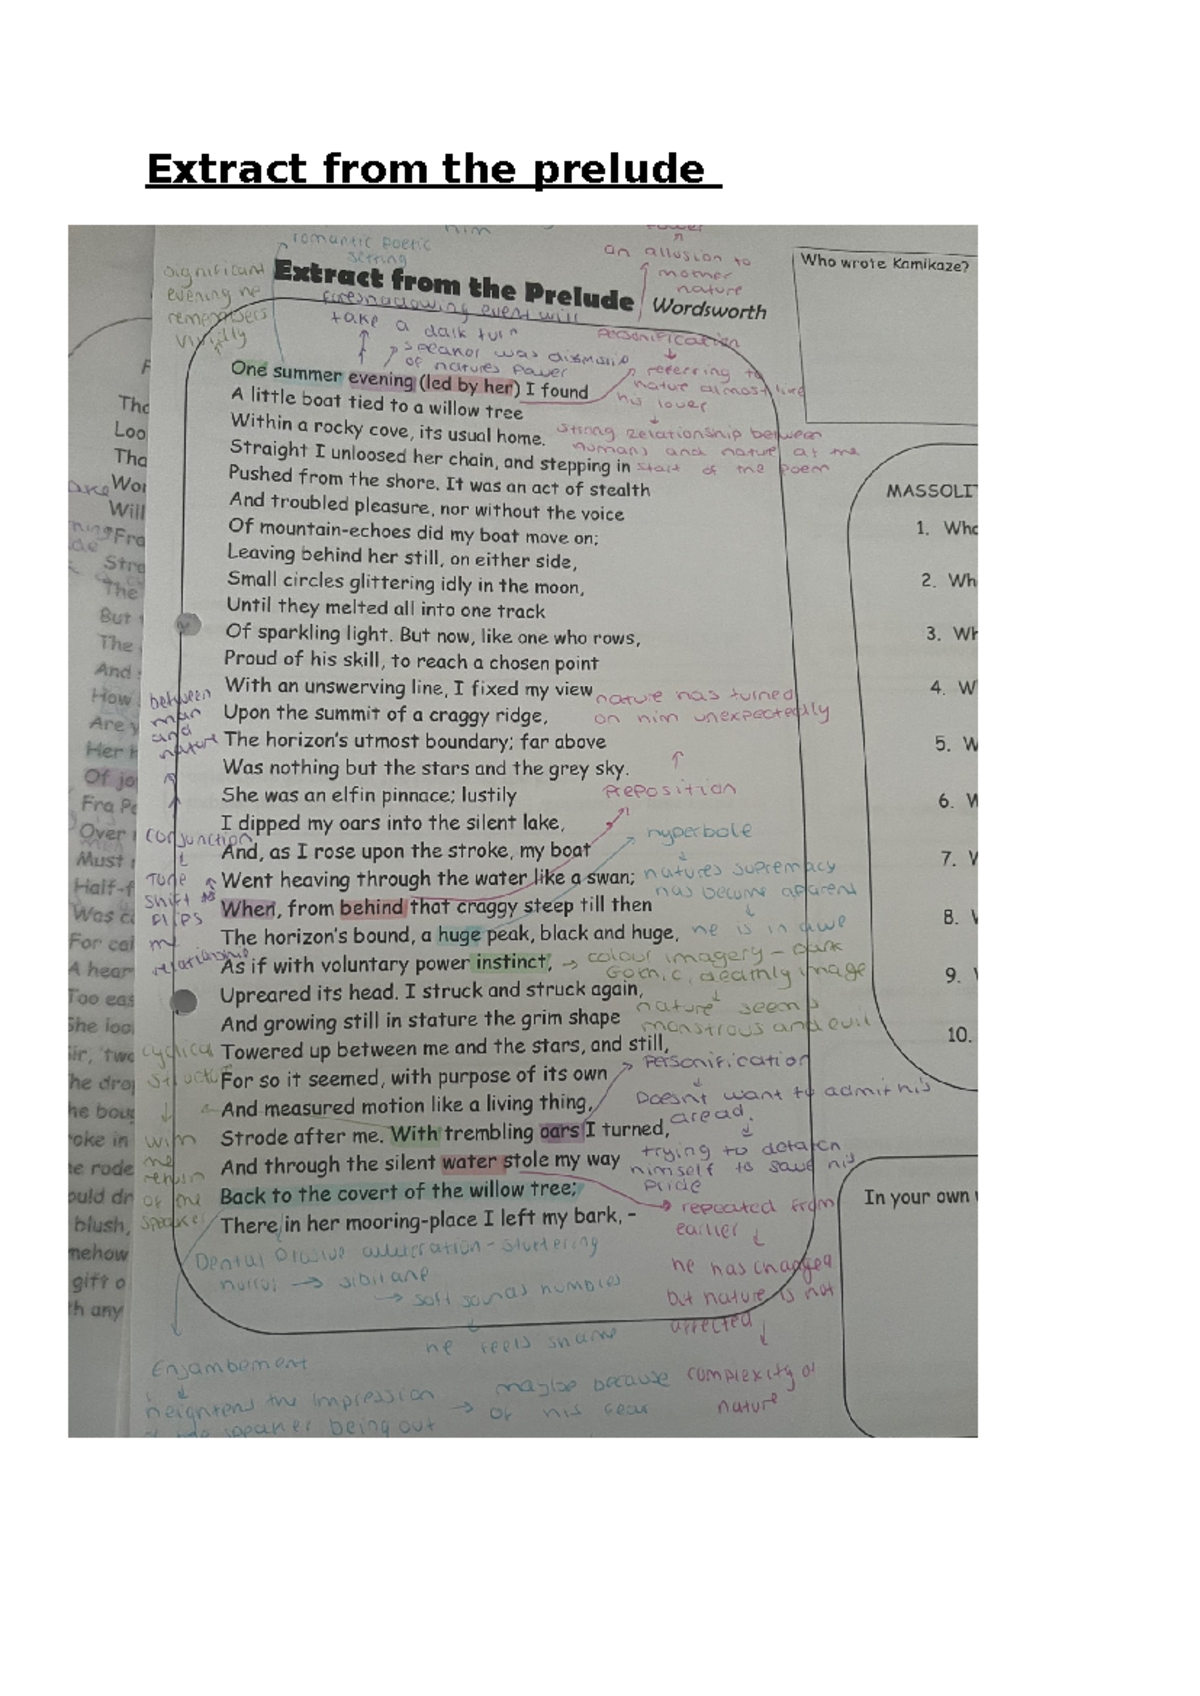 Extract from the prelude
him
power
romantic poetic
setring
an allusion to
mother
nature
Who wrote Kamikaze?
significant
evening he
remembers
vividly
Extract from the Prelude
Wordsworth
foreshadowing event will
take a dark turn
personification
speaker was dismissive
of natures power
referring to
nature almost like
his lover
One summer evening (led by her) I found
A little boat tied to a willow tree
Within a rocky cove, its usual home.
strong relationship between
humans and nature at the
start of the poem
Straight I unloosed her chain, and stepping in
Pushed from the shore. It was an act of stealth
And troubled pleasure, nor without the voice
Of mountain-echoes did my boat move on;
Leaving behind her still, on either side,
Small circles glittering idly in the moon,
Until they melted all into one track
Of sparkling light. But now, like one who rows,
Proud of his skill, to reach a chosen point
With an unswerving line, I fixed my view
Upon the summit of a craggy ridge,
The horizon's utmost boundary; far above
Was nothing but the stars and the grey sky.
She was an elfin pinnace; lustily
I dipped my oars into the silent lake,
And, as I rose upon the stroke, my boat
Went heaving through the water like a swan;
When, from behind that craggy steep till then
The horizon's bound, a huge peak, black and huge,
As if with voluntary power instinct,
Upreared its head. I struck and struck again,
And growing still in stature the grim shape
Towered up between me and the stars, and still,
For so it seemed, with purpose of its own
And measured motion like a living thing,
Strode after me. With trembling oars I turned,
And through the silent water stole my way
Back to the covert of the willow tree;
There in her mooring-place I left my bark, -
between
man
and
nature
conjunction
tone
shift
flips
the
relationship
cyclical
structure
with
the
return
of the
speaker
nature has turned
on him unexpectedly
Preposition
hyperbole
natures supremacy
has become apparent
he is in awe
colour imagery - dark
Gothic, deathly image
nature seems
monstrous and evil
Personification
Doesnt want to admit his
dread.
trying to detatch
himself to save his
pride
repeated from
earlier
he has changed
but nature is not
affected
complexity of
nature
Dental plosive alliteration - stuttering
horror → sibilane
→ soft sounds humbles
he feels shame
Enjambement
heightens the impression
→ maybe because
of his fear
of the speaker being out
MASSOLIT
1. Who
2. Wh
3. Wh
4. W
5. W
6. W
7. W
8.
9.
10.
In your own
Tho
Loo
Tha
Wor
Will
Fro
Stro
The
But
The
And
How
Are y
Her h
Of jo
Fra Pa
Over
Must
Half-f
Was c
For cal
A hear
Too eas
She loo
Sir, 'twa
he drop
he boug
roke in
he rode
ould dr
blush,
mehow
gift o
h any